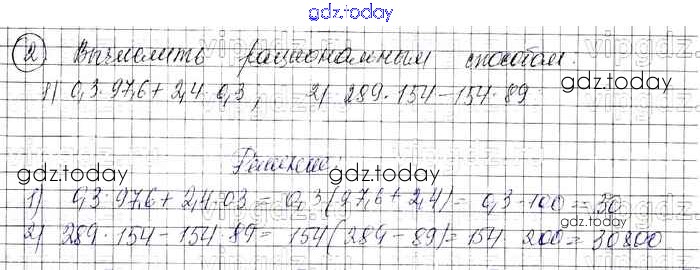 gdz.today
② Вычислить рациональным способом.
1) 0,3·97,6 + 2,4·0,3, 2) 289·154 − 154·89
gdz.today
Решение.
gdz.today gdz.today
1) 0,3·97,6 + 2,4·03 = 0,3(97,6 + 2,4) = 0,3·100 = 30
gdz.today
2) 289·154 − 154·89 = 154(289 − 89) = 154·200 = 30800